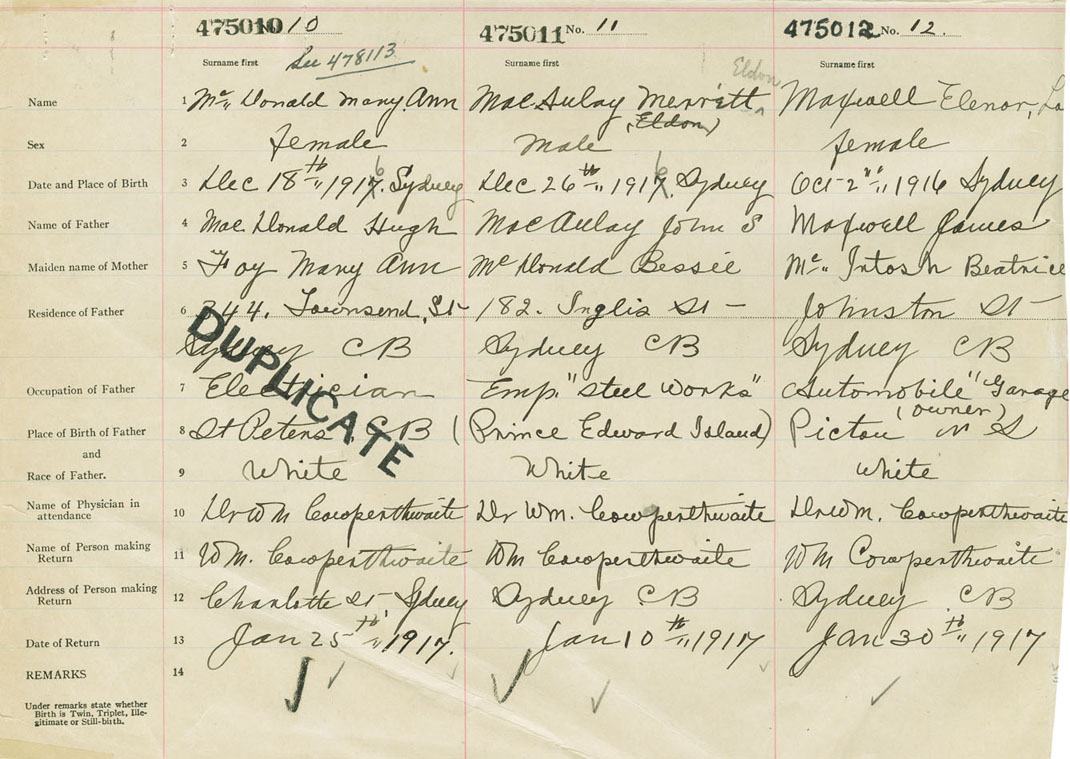 475010 10 475011 No. 11 475012 No. 12.
See 478113
Surname first Surname first Surname first
Eldon
Name 1 Mc Donald Mary Ann Mac Aulay Merritt Maxwell Elenor,
(Eldon)
Sex 2 female male female
Date and Place of Birth 3 Dec 18th 1916. Sydney Dec 26th 1916. Sydney Oct 2nd 1916 Sydney
Name of Father 4 Mac Donald Hugh Mac Aulay John S Maxwell James
Maiden name of Mother 5 Foy Mary Ann Mc Donald Bessie Mc Intosh Beatrice
Residence of Father 6 344. Townsend St 182. Inglis St - Johnston St
Sydney CB Sydney CB Sydney CB
Occupation of Father 7 Electrician Emp. "Steel Works" Automobile "Garage
(owner)
Place of Birth of Father 8 St Peters CB (Prince Edward Island) Pictou N S
and
Race of Father. 9 White White White
Name of Physician in
attendance 10 Dr Wm Cowperthwaite Dr Wm. Cowperthwaite Dr Wm. Cowperthwaite
Name of Person making
Return 11 Wm. Cowperthwaite Wm Cowperthwaite Wm Cowperthwaite
Address of Person making
Return 12 Charlotte St, Sydney Sydney CB Sydney CB
Date of Return 13 Jan 25th 1917. Jan 10th 1917 Jan 30th 1917
REMARKS 14
Under remarks state whether
Birth is Twin, Triplet, Ille-
gitimate or Still-birth.
DUPLICATE